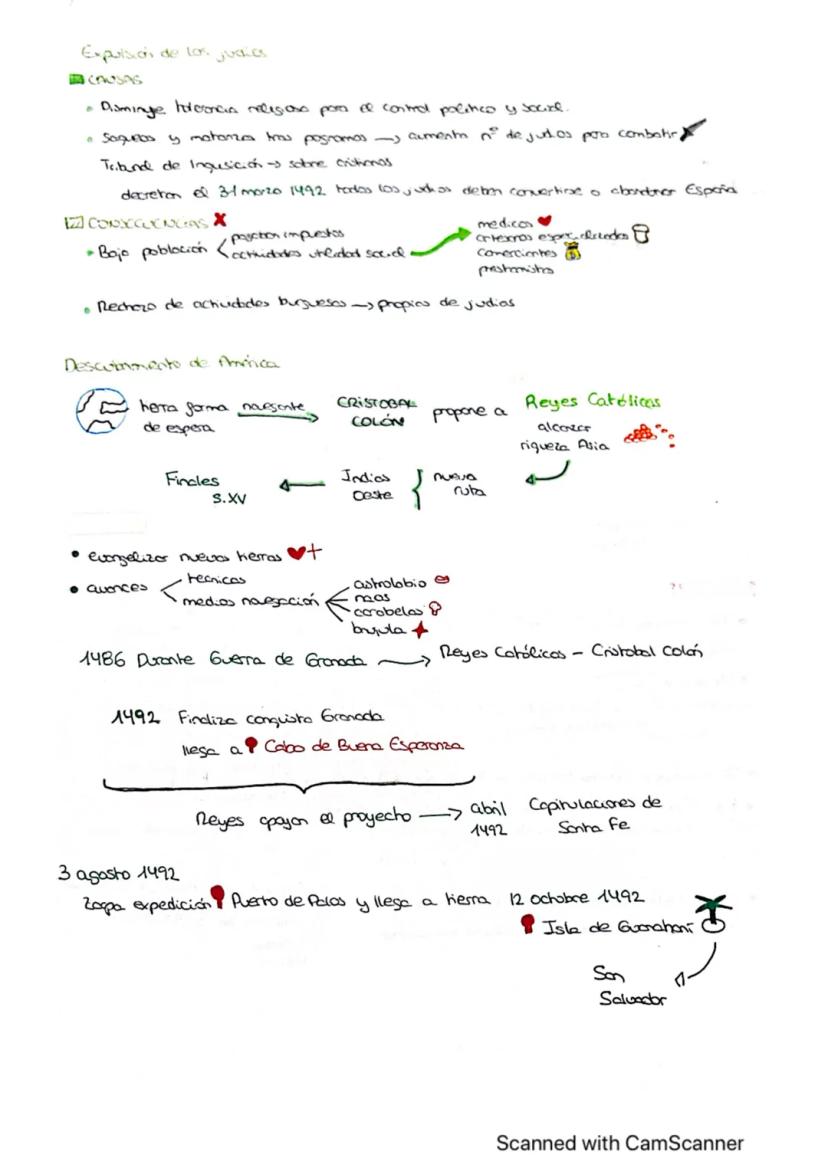 Expulsión de los judíos
CAUSAS
Disminuye tolerancia religiosa para el control político y social.
Saqueos y matanzas tras pogromos → aumenta nº de judíos para combatir
Tribunal de Inquisición → sobre cristianos
decretan el 31 marzo 1492 todos los judíos deben convertirse o abandonar España
CONSECUENCIAS
Baja población
pagaban impuestos
actividades utilidad social
medicos
artesanos especializados
comerciantes
prestamistas
Rechazo de actividades burguesas → propias de judías
Descubrimiento de América
tierra forma de espera
navegante
CRISTOBAL COLÓN
propone a
Reyes Católicos
alcanzar
riqueza Asia
nueva ruta
Indias Oeste
Finales
S.XV
evangelizar nuevas tierras
avances
técnicas
medios navegación
astrolabio
naos
carabelas
brújula
1486 Durante Guerra de Granada → Reyes Católicos - Cristobal Colón
1492 Finaliza conquista Granada
llega a Cabo de Buena Esperanza
Reyes apoyan el proyecto → abril 1492 Capitulaciones de Santa Fe
3 agosto 1492
Zarpa expedición Puerto de Palos y llega a tierra 12 octubre 1492
Isla de Guanahaní
San Salvador
Scanned with CamScanner